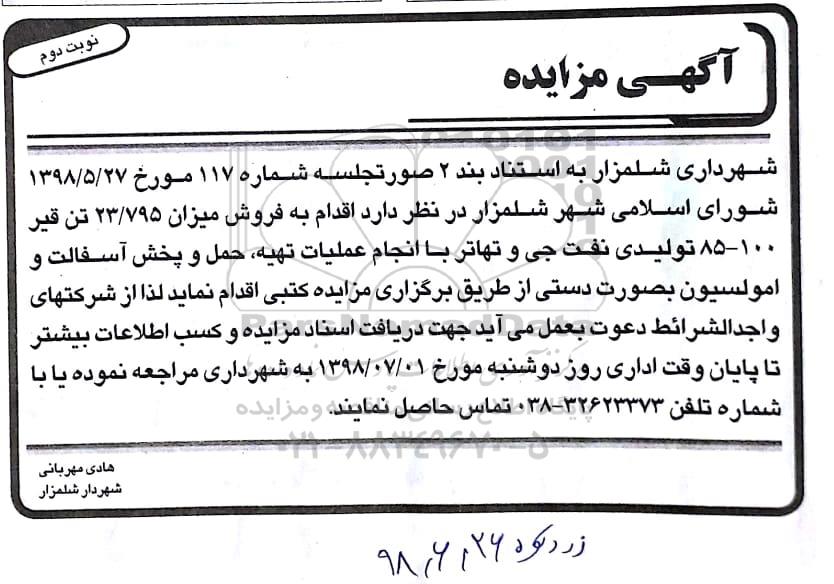 نوبت دوم
آگهـی مزایده
شهرداری شلمزار به استناد بند ۲ صورتجلسه شماره ۱۱۷ مورخ ۱۳۹۸/۵/۲۷
شورای اسلامی شهر شلمزار در نظر دارد اقدام به فروش میزان ۲۳/۷۹۵ تن قیر
۸۵-۱۰۰ تولیدی نفت جی و تهاتر با انجام عملیات تهیه، حمل و پخش آسفالت و
امولسیون بصورت دستی از طریق برگزاری مزایده کتبی اقدام نماید لذا از شرکتهای
واجدالشرائط دعوت بعمل می آید جهت دریافت اسناد مزایده و کسب اطلاعات بیشتر
تا پایان وقت اداری روز دوشنبه مورخ ۱۳۹۸/۰۷/۰۱ به شهرداری مراجعه نموده یا با
شماره تلفن ۳۲۶۲۳۳۷۳-۰۳۸ تماس حاصل نمایند.
ParsNamadData
۰۲۱-۸۸۳۴۹۶۷۰-۵
هادی مهربانی
شهردار شلمزار
زردکوه ۹۸٫۶٫۲۶